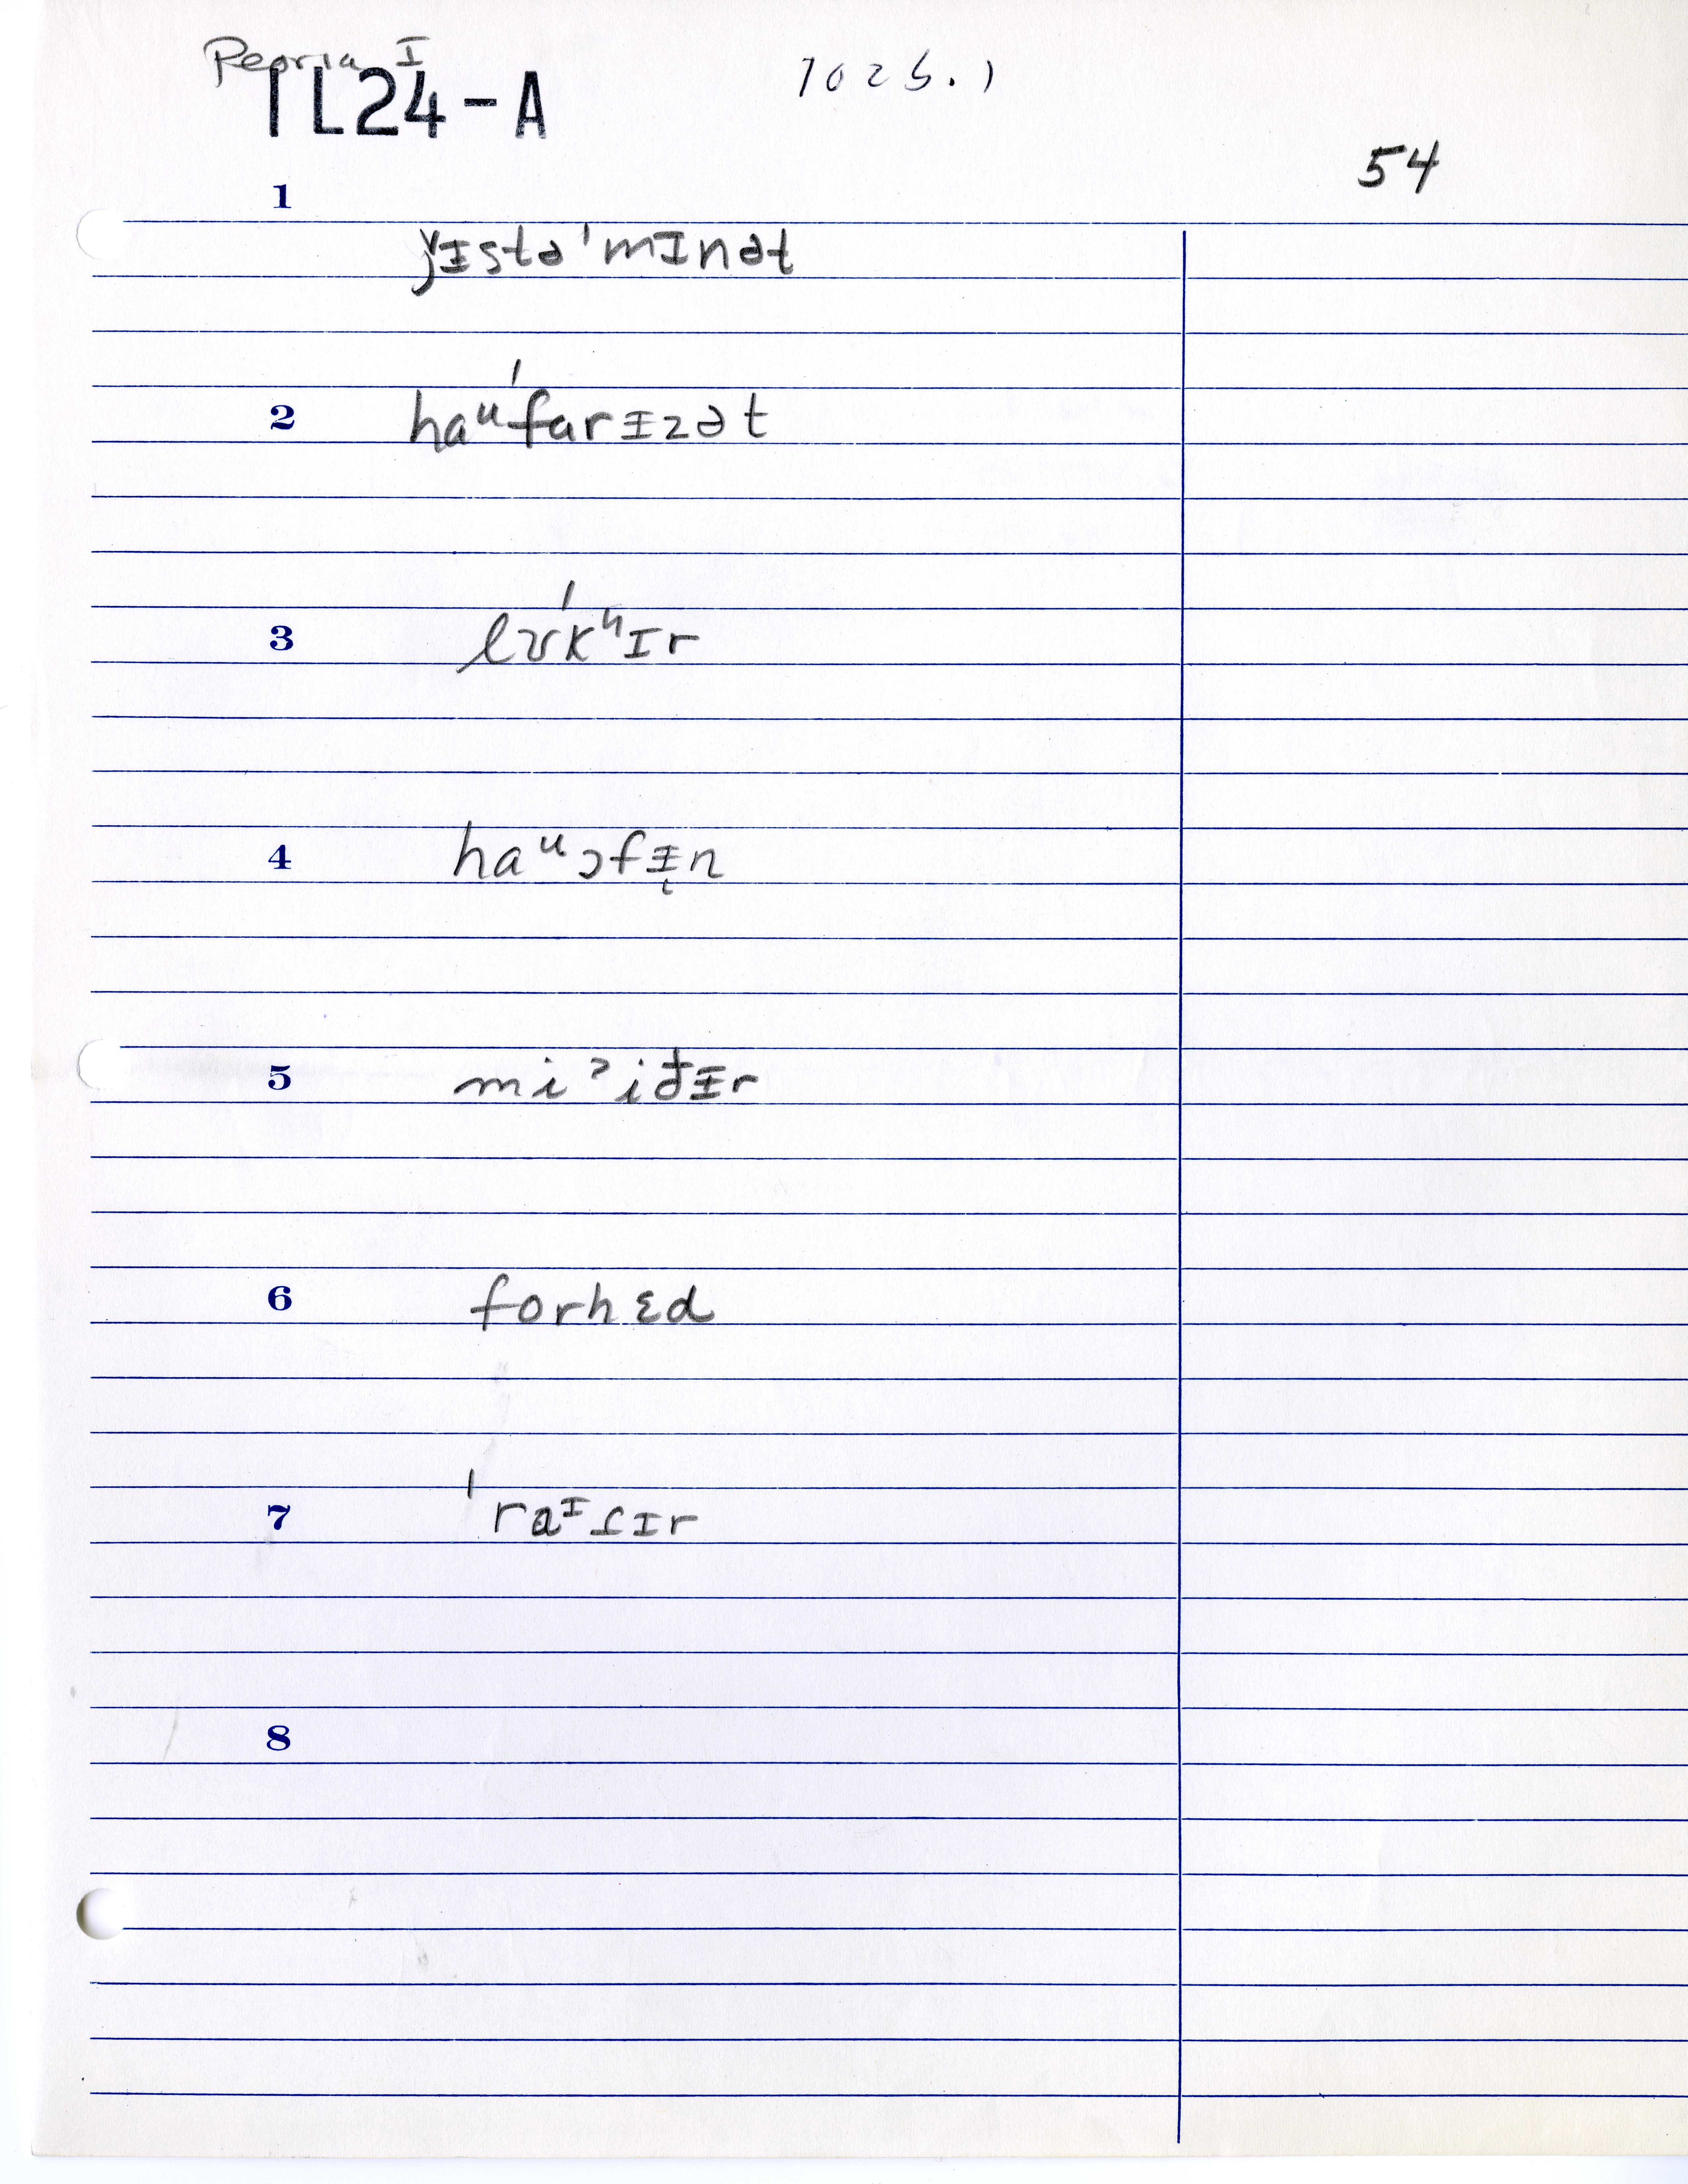 Peoria I
IL24-A
7025.1
54
1
ǰᵻstə'mɪnət
2
haᵘ́farᵻzət
3
lʊ́kʰɪr
4
haᵘɔfᵻ̨n
5
miˀiđᵻr
6
forhɛd
7
'raᶦɾɪr
8